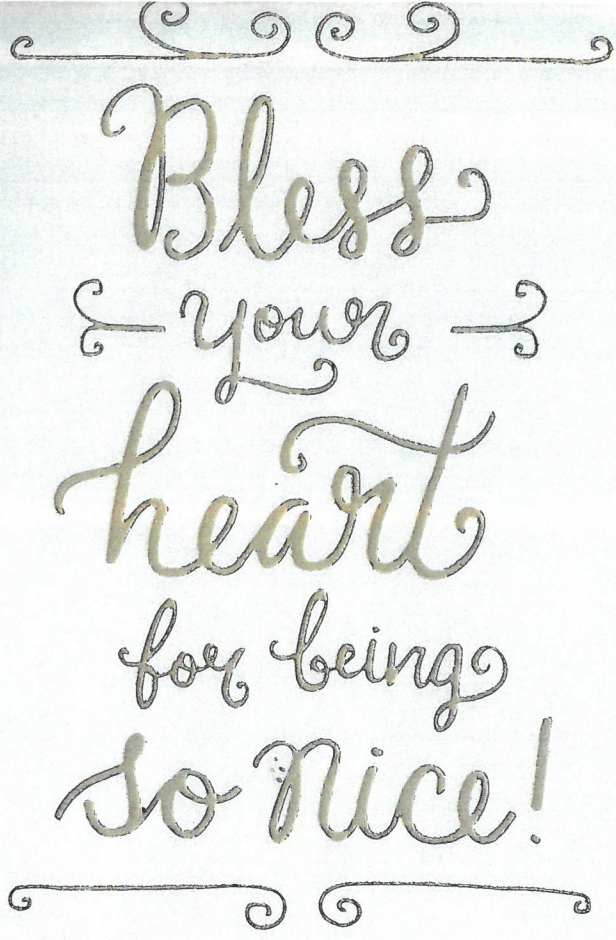 Bless
your
heart
for being
so nice!